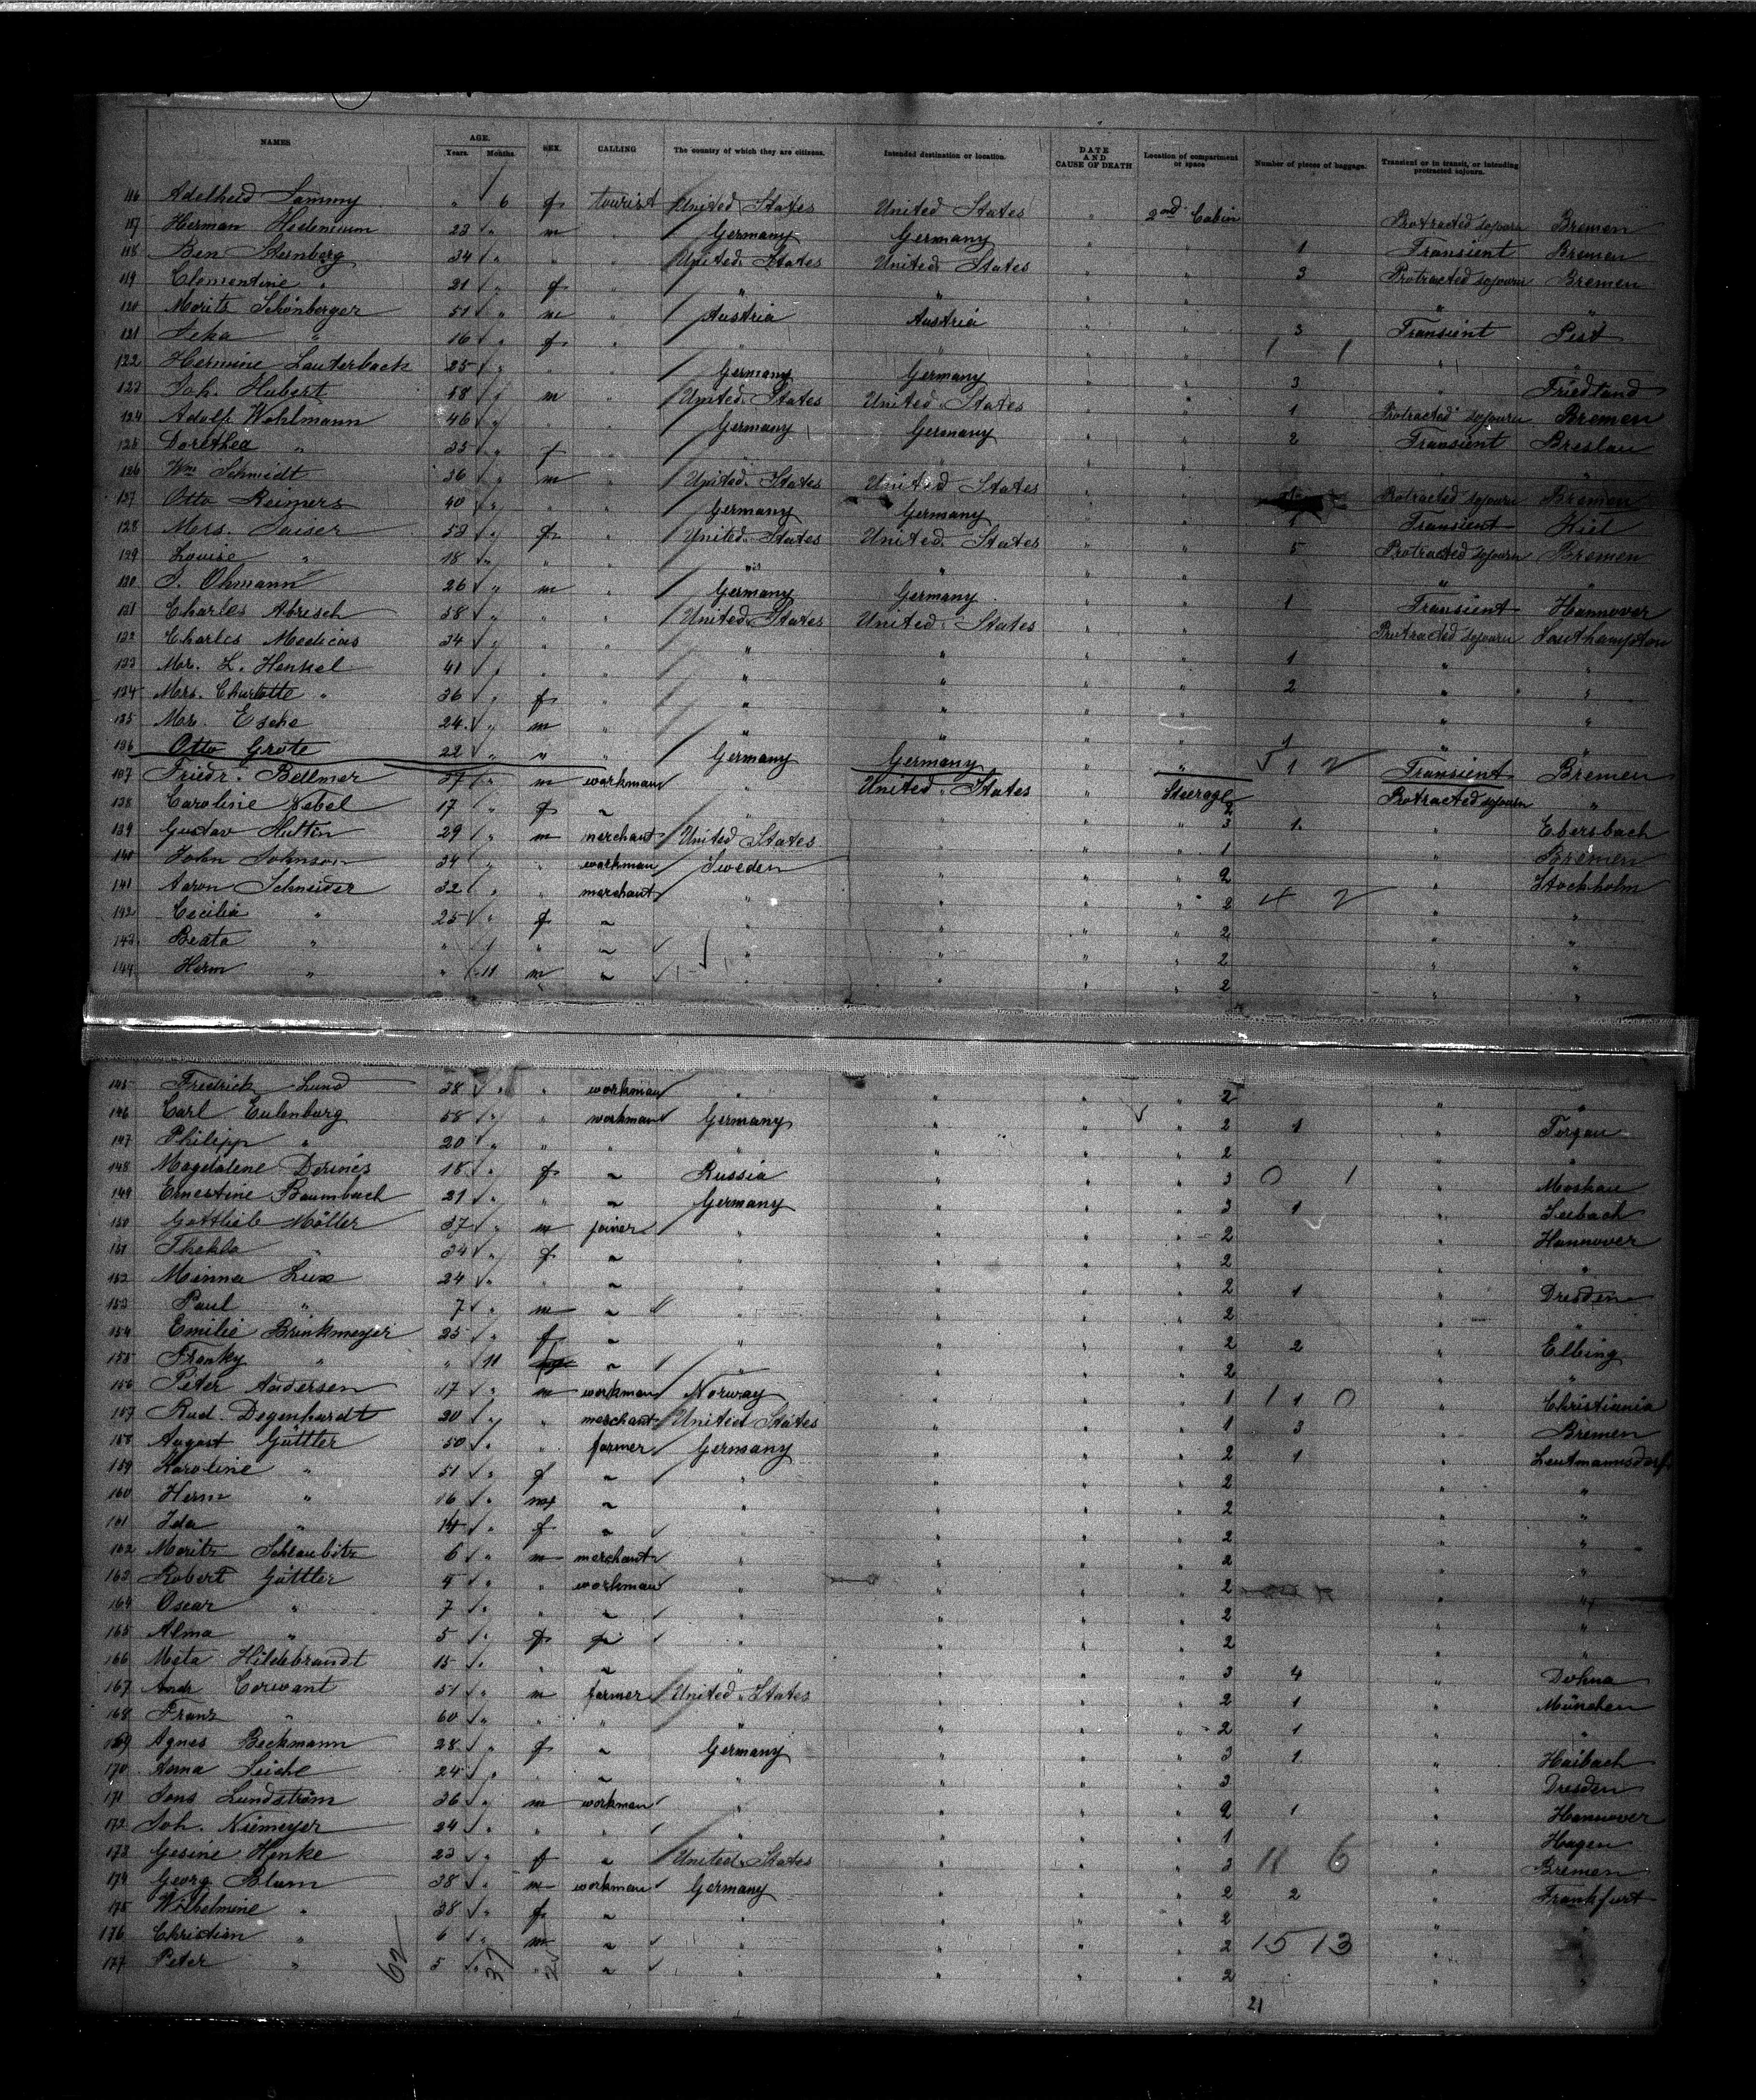 NAMES AGE. Years. Months. SEX. CALLING The country of which they are citizens. Intended destination or location. DATE AND CAUSE OF DEATH Location of compartment or space Number of pieces of baggage. Transient or in transit, or intending protracted sojourn.
116 Adelheid " 6 f tourist United States United States " 2nd Cabin Protracted sojourn Bremen
117 Herman 23 " m " Germany Germany " " 1 Transient Bremen
118 Ben Sternberg 34 " " " United States United States " " 3 Protracted sojourn Bremen
119 Clementine " 21 " f " " " " " " "
120 Morits Schönberger 51 " m " Austria Austria " " 3 Transient Pest
121 " 16 " f " " " " " 1 1 " "
122 Hermine Lauterbach 25 " " " Germany Germany " " 3 " Friedland
123 Joh. Hubert 58 " m " United States United States " " 1 Protracted sojourn Bremen
124 Adolf Wohlmann 46 " " " Germany Germany " " 2 Transient Breslau
125 Dorethea " 35 " f " " " " " " "
126 Wm Schmidt 36 " m " United States United States " " Protracted sojourn Bremen
127 Otto Reimers 40 " " " Germany Germany " " 1 Transient Kiel
128 Mrs. Saiser 53 " f " United States United States " " 5 Protracted sojourn Bremen
129 Louise " 18 " " " " " " " " "
130 Ohmann 26 " m " Germany Germany " " 1 Transient Hannover
131 Charles Abresch 58 " " " United States United States " " Protracted sojourn Southampton
132 Charles Medicus 34 " " " " " " " 1 " "
133 Mr. L. Henkel 41 " " " " " " " 2 " "
134 Mrs. Charlotte " 36 " f " " " " " " "
135 Mr. Esche 24 " m " " " " " 1 " "
136 Otto Grote 22 " " " Germany Germany " " 5 1 2 Transient Bremen
137 Friedr. Bellmer " m workman " United States " Steerage 2 Protracted sojourn "
138 Caroline Nebel 17 " f " " " " " 3 1 " Ebersbach
139 Gustav Huttin 29 " m merchant United States " " " 1 " Bremen
140 John Johnson 34 " " workman Sweden " " " 2 " Stockholm
141 Aaron Schneider 32 " " merchant " " " " 2 4 2 " "
142 Cecilia " 25 " f " " " " " 2 " "
143 Beata " " " " " " " " 2 " "
144 Herm " " 11 m " " " " " 2 " "
145 Fredrick Lund 38 " " workman " " " " 2 " "
146 Carl Eulenburg 58 " " workman Germany " " " 2 1 " Torgau
147 Philipp " 20 " " " " " " " 2 " "
148 Magdalene 18 " f " Russia " " " 3 0 1 " Moskau
149 Ernestine Baumbach 21 " " " Germany " " " 3 1 " Seebach
150 Gottlieb Möller 37 " m joiner " " " " 2 " Hannover
151 Thekla " 34 " f " " " " " 2 " "
152 Minna Lux 24 " " " " " " " 2 1 " Dresden
153 Paul " 7 " m " " " " " 2 " "
154 Emilie Brinkmeyer 25 " f " " " " " 2 2 " Elbing
155 Franky " " 11 " " " " " 2 " "
156 Peter Andersen 17 " m workman Norway " " " 1 1 1 0 " Christiania
157 Rud. Degenhardt 20 " " merchant United States " " " 1 3 " Bremen
158 August Güttler 50 " " farmer Germany " " " 2 1 " Leutmannsdorf
159 Karoline " 51 " f " " " " " 2 " "
160 Herm " 16 " m " " " " " 2 " "
161 Ida " 14 " f " " " " " 2 " "
162 Moritz Schlaubitz 6 " m merchant " " " " 2 " "
163 Robert Güttler " " workman " " " " 2 " "
164 Oscar " 7 " " " " " " " 2 " "
165 Alma " 5 " f " " " " " 2 " "
166 Meta Hildebrandt 15 " " " " " " " 3 4 " Dohna
167 Andr Corwant 51 " m farmer United States " " " 2 1 " München
168 Franz " 60 " " " " " " " 2 1 " "
169 Agnes Beckmann 28 " f " Germany " " " 3 1 " Haibach
170 Anna Leiche 24 " " " " " " " 3 " Dresden
171 Jons Lundström 36 " m workman " " " " 2 1 " Hannover
172 Joh. Niemeyer 24 " " " " " " " 1 " Hagen
173 Gesine Henke 23 " f " United States " " " 3 11 6 " Bremen
174 Georg Blum 38 " m workman Germany " " " 2 2 " Frankfurt
175 Wilhelmine " 38 " f " " " " " 2 " "
176 Christian " 6 " m " " " " " 2 15 13 " "
177 Peter " 5 " " " " " " " 2 " "
62 37 21